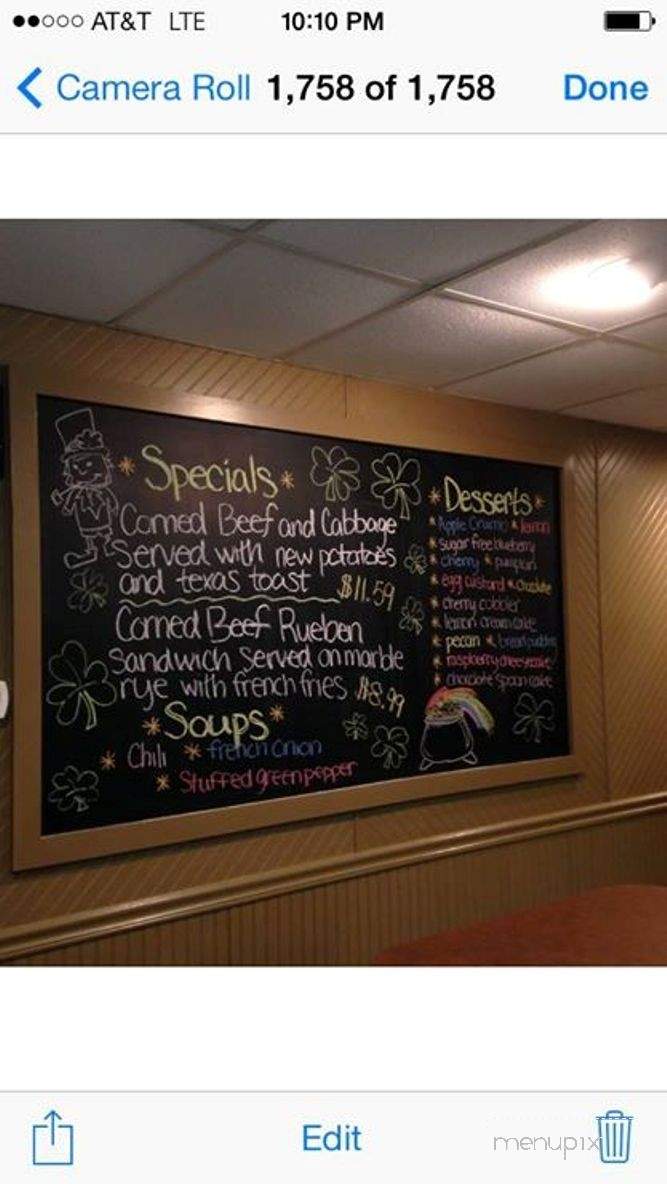 AT&T LTE 10:10 PM
Camera Roll 1,758 of 1,758 Done
* Specials *
Corned Beef and Cabbage
Served with new potatoes
and texas toast $11.59
Corned Beef Rueben
Sandwich Served on marble
rye with french fries $8.99
* Soups *
* Chili * french onion
* Stuffed green pepper
* Desserts *
* Apple Crumb * lemon
* sugar free blueberry
* cherry * pumpkin
* egg custard * chocolate
* cherry cobbler
* lemon cream cake
* pecan * bread pudding
* raspberry cheesecake
* chocolate spoon cake
Edit
menupix